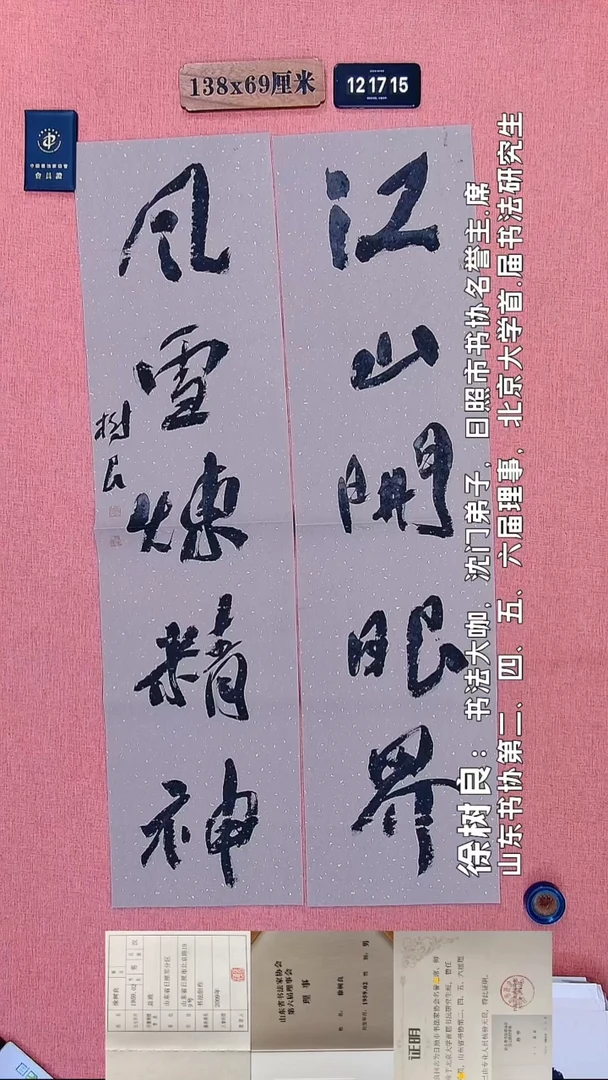 138x69厘米
12 17 15
會員證
江山開眼界
風雪煉精神
樹良
徐树良：书法大咖，沈门弟子，日照市书协名誉主.席
山东书协第二、四、五、六届理事，北京大学首.届书法研究生
山东省书法家协会
第六届理事会
理 事
证明